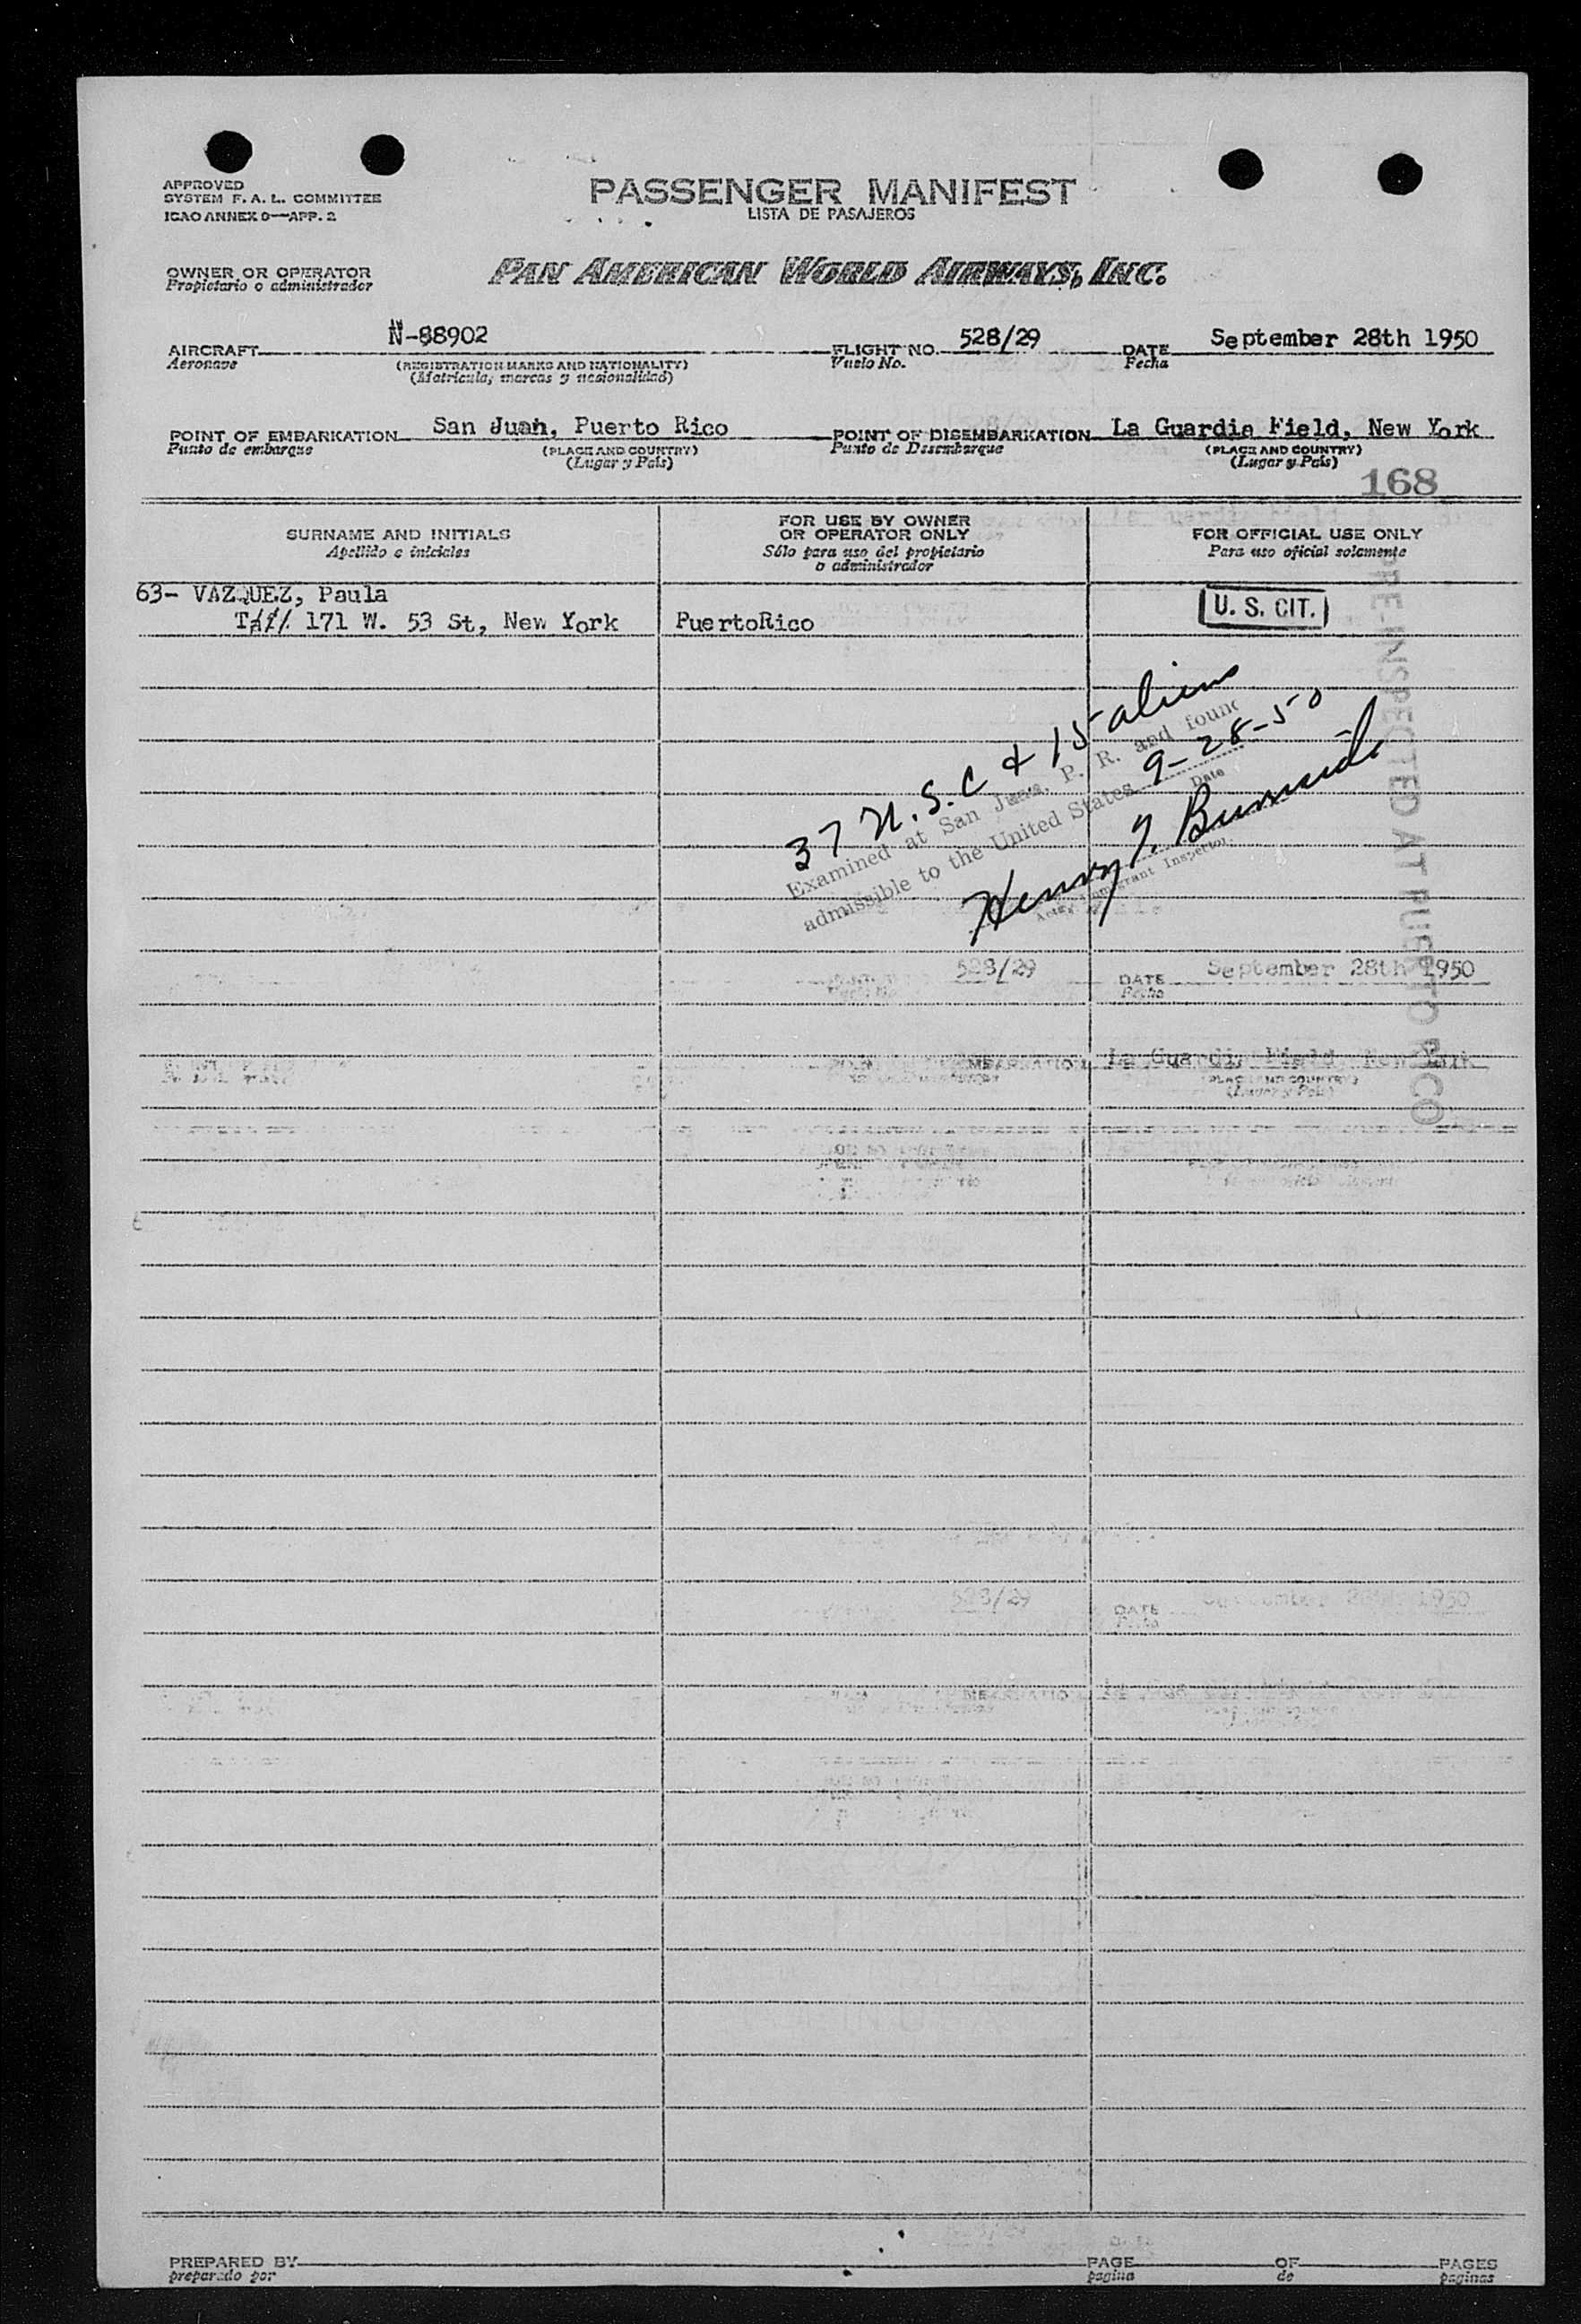 APPROVED
SYSTEM F. A. L. COMMITTEE
ICAO ANNEX 9—APP. 2
PASSENGER MANIFEST
LISTA DE PASAJEROS
OWNER OR OPERATOR
Propietario o administrador
PAN AMERICAN WORLD AIRWAYS, INC.
AIRCRAFT N-88902 FLIGHT NO. 528/29 DATE September 28th 1950
Aeronave (REGISTRATION MARKS AND NATIONALITY) Vuelo No. Fecha
(Matricula, marcas y nacionalidad)
POINT OF EMBARKATION San Juan, Puerto Rico POINT OF DISEMBARKATION La Guardia Field, New York
Punto de embarque (PLACE AND COUNTRY) Punto de Desembarque (PLACE AND COUNTRY)
(Lugar y Pais) (Lugar y Pais)
168
SURNAME AND INITIALS
Apellido e iniciales
FOR USE BY OWNER
OR OPERATOR ONLY
Sólo para uso del propietario
o administrador
FOR OFFICIAL USE ONLY
Para uso oficial solamente
63- VAZQUEZ, Paula
171 W. 53 St, New York PuertoRico
U. S. CIT.
PRE-INSPECTED AT PUERTO RICO
37 U.S.C & 15 aliens
Examined at San Juan, P. R. and found
admissible to the United States 9-28-50
Date
Henry
Immigrant Inspector.
528/29 DATE September 28th 1950
Fecha
La Guardia Field, New York
(PLACE AND COUNTRY)
(Lugar y Pais)
528/29 DATE September 28th 1950
PREPARED BY PAGE OF PAGES
preparado por pagina de paginas